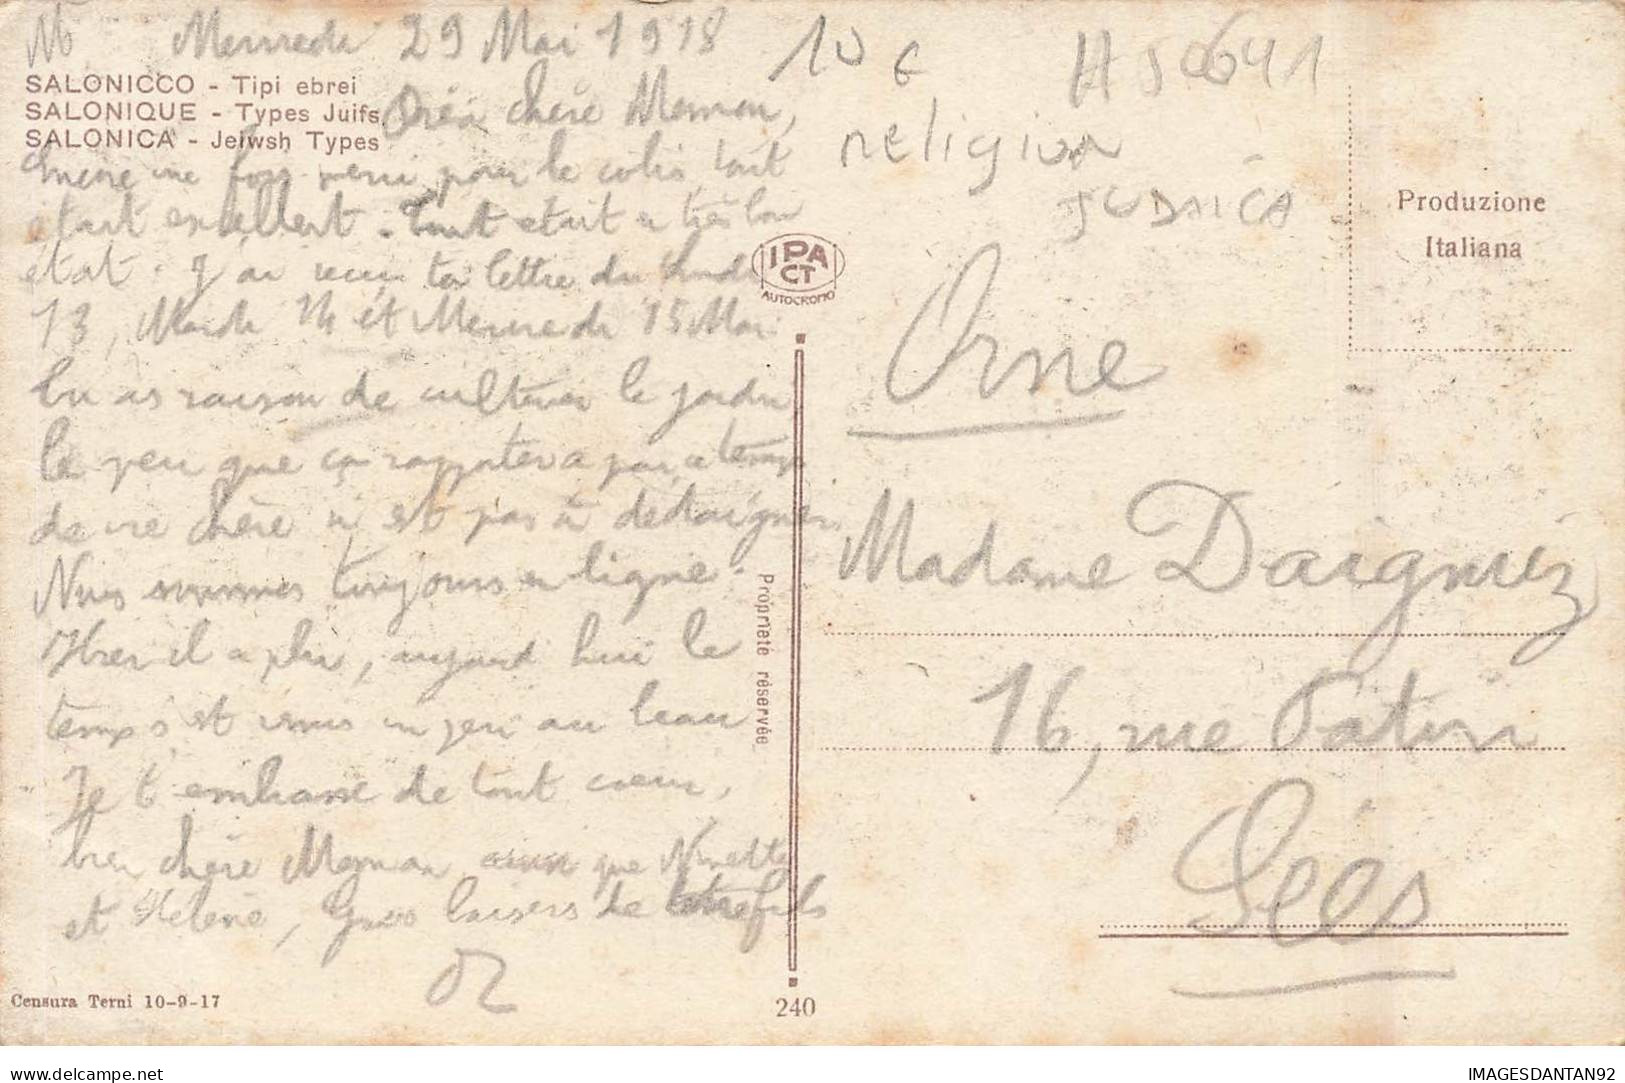 Mercredi 29 Mai 1918
SALONICCO - Tipi ebrei
SALONIQUE - Types Juifs
SALONICA - Jeiwsh Types
chère Maman,
Encore une fois merci pour le colis, tout
était excellent. Tout était en très bon
état. J'ai reçu ta lettre du Lundi
13, Mardi 14 et Mercredi 15 Mai
Tu as raison de cultiver le jardin
le peu que ça rapportera par ce temps
de vie chère n'est pas à dédaigner.
Nous sommes toujours en ligne.
Hier il a plu, aujourd'hui le
temps s'est remis un peu au beau
Je t'embrasse de tout cœur,
bien chère Maman ainsi que Ninette
et Hélène, Gros baisers de fils
Censura Terni 10-9-17
10 €
religion
JUDAICA
IPA
CT
AUTOCROMO
Propriété réservée
240
Produzione
Italiana
Orne
Madame
16, rue Patin
Sées
delcampe.net
IMAGESDANTAN92